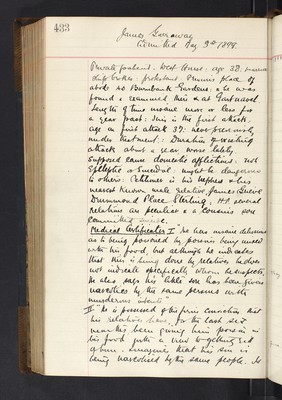 433
James
Admitted Aug 3rd 1899.
Private patient: West Kent: age 38, married
ship broker: protestant. Previous place of
abode 20 Burnbank Gardens. & he was
found & removed him at Gartnavel
length of time insane more or less for
a year past: this is the first attack,
age on first attack 37: never previously
under treatment. Duration of existing
attack about a year worse lately,
supposed cause domestic afflictions: not
Epileptic or Suicidal: might be dangerous
to others: Petitioner is his nephew & his
nearest known male relative, James
Drummond Place Stirling. Has several
relations are peculiar & a cousin's son
committed suicide.
Medical Certificates I "he has insane delusions
as to being poisoned by poison being mixed
with his food, but although he indicates
that this is being done by relatives, he does
not indicate specifically whom he suspects.
He also says his little son has been given
narcotics by the same persons with
murderous intent"
II "he is possessed of the firm conviction that
his relatives have for the last six
months been giving him poison in
his food with a view to getting rid
of him. Imagines that his son is
being narcotised by the same people. Is